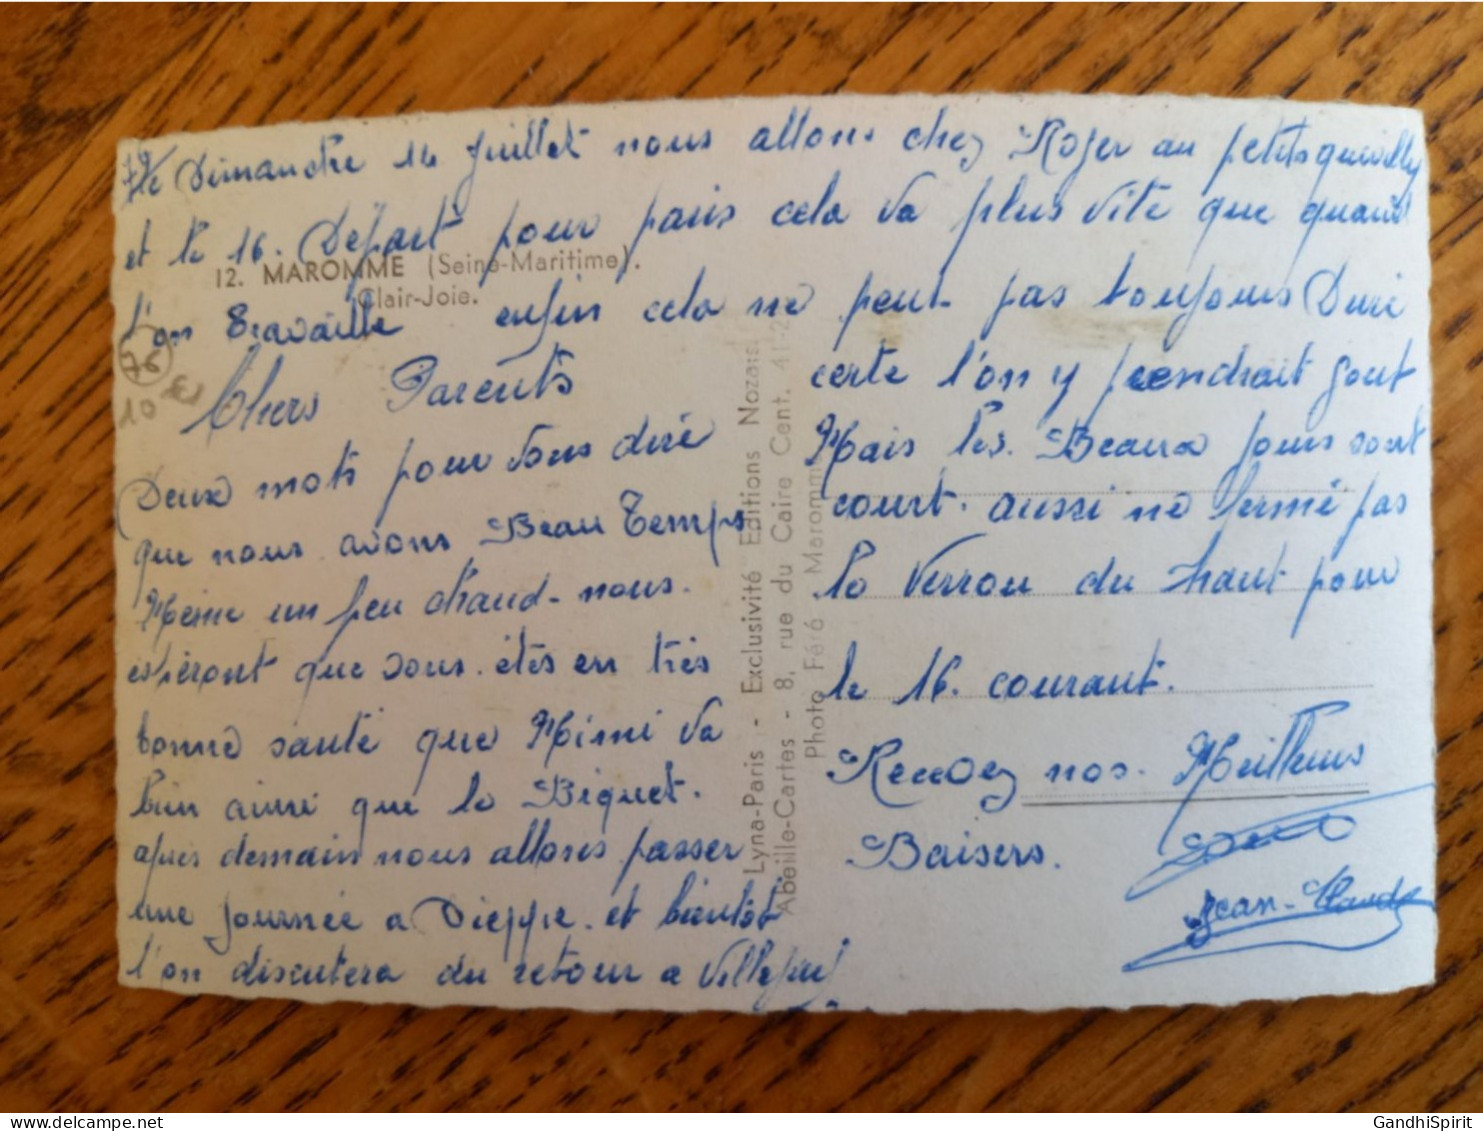 le Dimanche 14 Juillet nous allons chez Roger au petit quevilly
et le 16. Départ pour paris cela va plus vite que quand
l'on travaille enfin cela ne peut pas toujours Duré
12. MAROMME (Seine-Maritime).
Clair-Joie.
76
10 €
Chers Parents
Deux mots pour vous diré
que nous avons Beau Temps
Même un peu chaud - nous.
espéront que vous. êtes en très
bonne santé que Mimi va
bien ainsi que le Biquet.
après demain nous allons passer
une journée a Dieppe. et bientôt
l'on discutera du retour a Villejuif
Lyna-Paris - Exclusivité Editions Nozais.
Abeille-Cartes - 8, rue du Caire Cent. 41-2
Photo Féré Maromme
certe l'on y prendrait gout
Mais les. Beaux jours sont
court. aussi ne fermé pas
le verrou du haut pour
le 16. courant.
Recevez nos. Meilleurs
Baisers.
Jean-Claude
GandhiSpirit